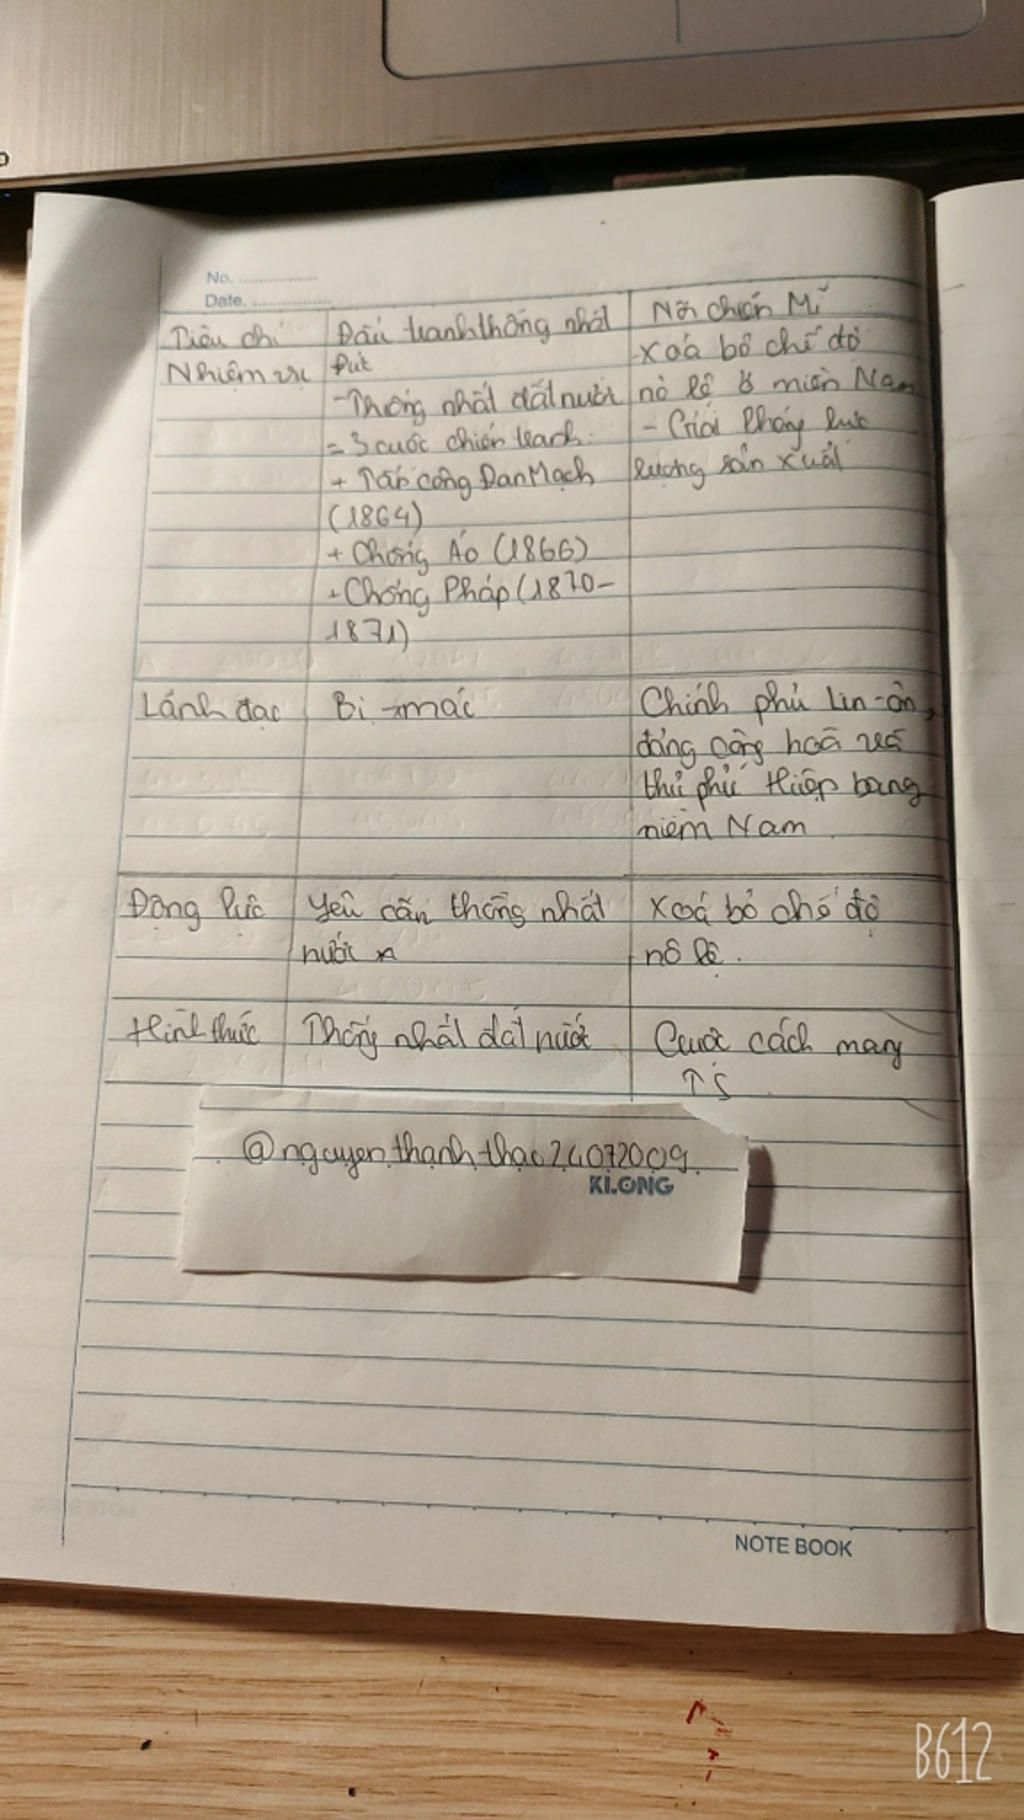 No. ..................
Date. ..................
Tiêu chí
Đấu tranh thống nhất
Đức
Nội chiến Mĩ
Nhiệm vụ
- Thống nhất đất nước
= 3 cuộc chiến tranh:
+ Tấn công Đan Mạch
(1864)
+ Chống Áo (1866)
+ Chống Pháp (1870-
1871)
Xoá bỏ chế độ
nô lệ ở miền Nam
- Giải phóng lực
lượng sản xuất
Lãnh đạo
Bi-xmác
Chính phủ Lin-côn,
đảng cộng hoà và
thủ phủ Hiệp bang
miềm Nam
Động lực
Yêu cầu thống nhất
nước
Xoá bỏ chế độ
nô lệ.
Hình thức
Thống nhất đất nước
Cuộc cách mạng
TS
@nguyen.thanh.thao24072009.
KLONG
NOTE BOOK
B612